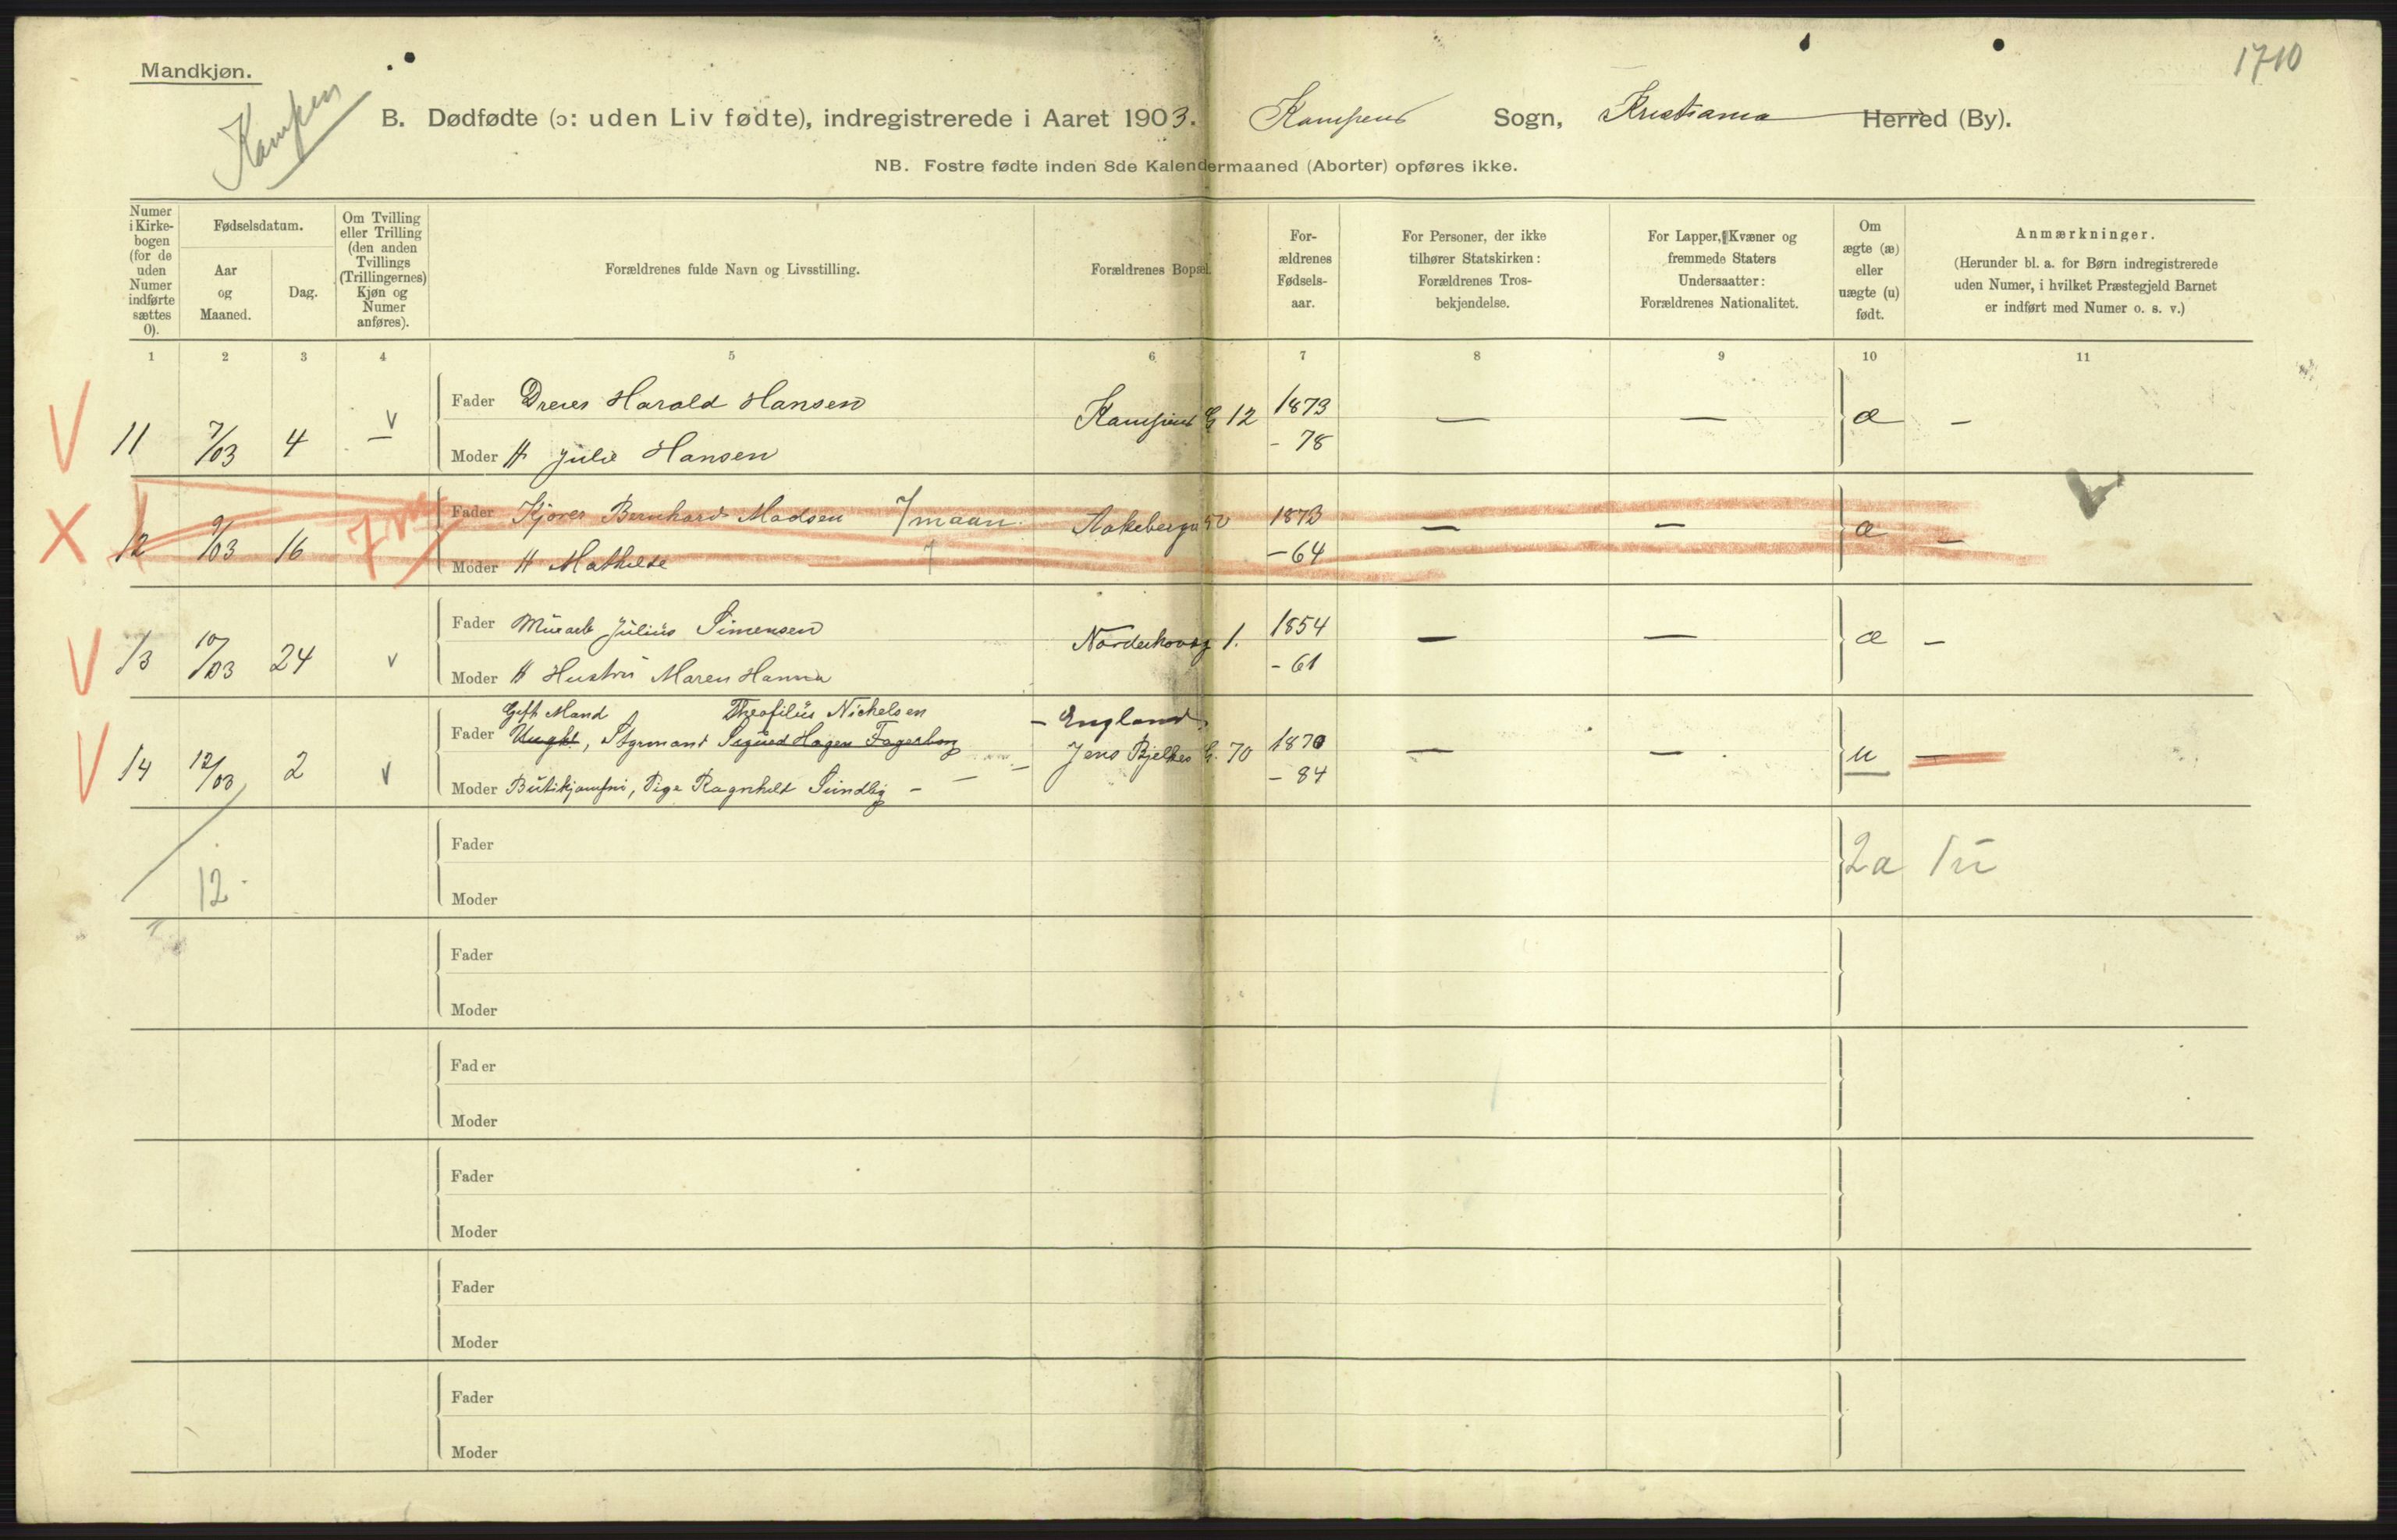 1710
Mandkjøn.
Kampen
B. Dødfødte (ɔ: uden Liv fødte), indregistrerede i Aaret 1903. Kampens Sogn, Kristiania Herred (By).
NB. Fostre fødte inden 8de Kalendermaaned (Aborter) opføres ikke.
Numer
i Kirke-
bogen
(for de
uden
Numer
indførte
sættes
0).
Fødselsdatum.
Aar
og
Maaned.
Dag.
Om Tvilling
eller Trilling
(den anden
Tvillings
(Trillingernes)
Kjøn og
Numer
anføres).
Forældrenes fulde Navn og Livsstilling.
Forældrenes Bopæl.
For-
ældrenes
Fødsels-
aar.
For Personer, der ikke
tilhører Statskirken:
Forældrenes Tros-
bekjendelse.
For Lapper, Kvæner og
fremmede Staters
Undersaatter:
Forældrenes Nationalitet.
Om
ægte (æ)
eller
uægte (u)
født.
Anmærkninger.
(Herunder bl. a. for Børn indregistrerede
uden Numer, i hvilket Præstegjeld Barnet
er indført med Numer o. s. v.)
1 2 3 4 5 6 7 8 9 10 11
V 11 7/03 4 V —
Fader Dreier Harald Hansen Kampens G 12 1873 — — æ —
Moder H Julie Hansen - 78
X 12 9/03 16 7 m
Fader Kjører Bernhard Madsen 7 maan. Aakebergv 50 1873 — — æ — V
Moder H Mathilde - 64
V 13 10/03 24 v
Fader Murarb Julius Simensen Norderhovsg 1. 1854 — — æ —
Moder H Hustru Maren Hanna - 61
Gift Mand Theofilus Nickelsen - England.
V 14 12/03 2 V
Fader Ungkl, Styrmand Sigurd Hagen Fagerborg Jens Bjelkes G. 70 1870 — — u —
Moder Butikjomfru, Pige Ragnhild Sundby - - 84
12
Fader
2a 1u
Moder
Fader
Moder
Fader
Moder
Fader
Moder
Fader
Moder
Fader
Moder